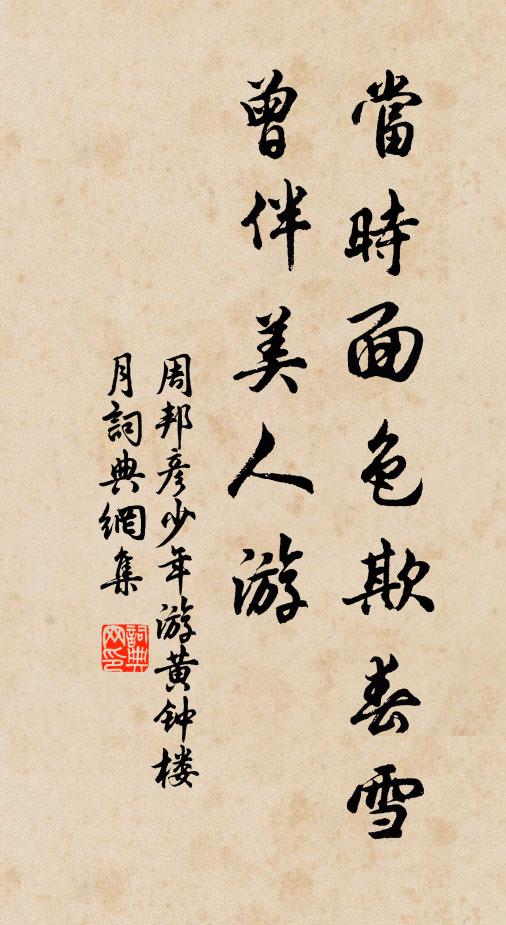 當時面色欺春雪
曾伴美人游
周邦彦少年游黄钟楼
月詞典網集
詞典
网印